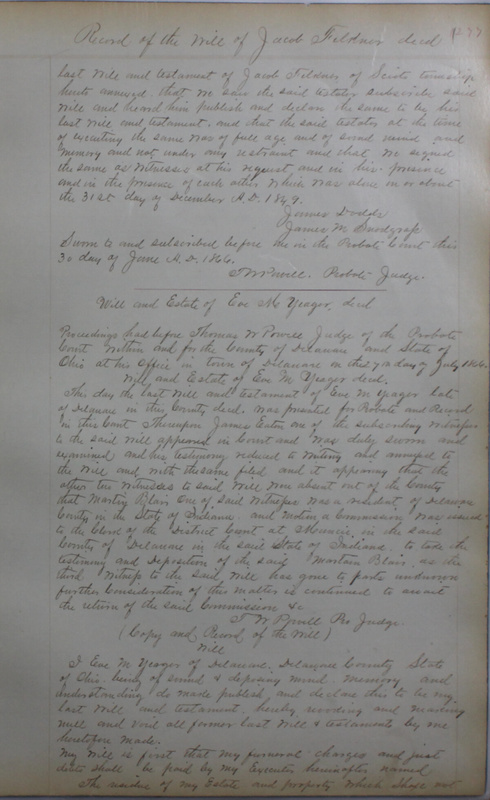 Record of the Will of Jacob Fieldner decd
last Will and testament of Jacob Fieldner of Scioto township
hereto annexed, that we saw the said testator subscribe said
Will and heard him publish and declare the same to be his
last Will and testament. and that the said testator at the time
of executing the same was of full age and of sound mind and
memory and not under any restraint and that we signed
the same as witnesses at his request and in his presence
and in the presence of each other Which was done in or about
the 31st day of December A.D. 1849.
James Dodds
James M. Snodgrass
Sworn to and subscribed before me in the Probate Court this
30 day of June A.D. 1866.
T W Powell. Probate Judge.
Will and Estate of Eve M Yeager, decd
Proceedings had before Thomas W Powell Judge of the Probate
Court Within and for the County of Delaware and State of
Ohio at his Office in town of Delaware on this day of July 1866.
Will and Estate of Eve M Yeager decd.
This day the last Will and testament of Eve M Yeager late
of Delaware in this County decd. was presented for Probate and Record
in this Court Thereupon James Eaton one of the subscribing witnesses
to the said will appeared in Court and was duly sworn and
examined and his testimony reduced to writing and annexed to
the Will and with the same filed and it appearing that the
other two Witnesses to said Will were absent out of the County
that Martin Blair One of said Witnesses was a resident of Delaware
County in the State of Indiana. and a Commission was issued
to the Clerk of the District Court at Muncie in the said
County of Delaware in the said State of Indiana. to take the
testimony and Deposition of the said Martain Blair. as the
third Witness to the said Will has gone to parts unknown
further Consideration of this matter is continued to await
the return of the said Commission &c
T. W. Powell Pro Judge
(Copy and Record of the Will)
Will
I Eve M Yeager of Delaware. Delaware County State
of Ohio. being of sound & disposing mind. memory and
understanding do made publish, and declare this to be my
last Will and testament. hereby revoking and making
null and void all former last Will & testaments by me
heretofore made.
My Will is first that my funeral charges and just
debts shall be paid by my Executor hereinafter named
The residue of my Estate and property which shall not